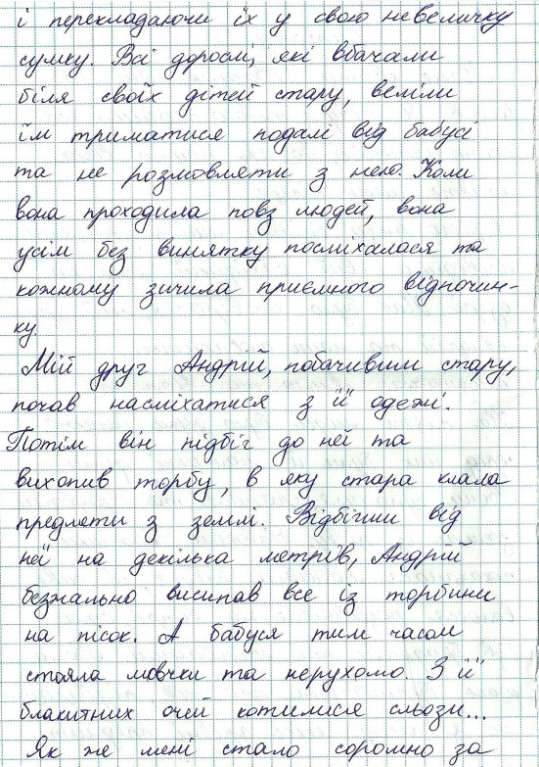 і перекладаючи їх у свою невеличку
сумку. Всі дорослі, які вбачали
біля своїх дітей стару, веліли
їм триматися подалі від бабусі
та не розмовляти з нею. Коли
вона проходила повз людей, вона
усім без винятку посміхалася та
кожному зичила приємного відпочин-
ку.
Мій друг Андрій, побачивши стару,
почав насміхатися з її одежі.
Потім він підбіг до неї та
вихопив торбу, в яку стара клала
предмети з землі. Відбігши від
неї на декілька метрів, Андрій
безжально висипав все із торбини
на пісок. А бабуся тим часом
стояла мовчки та нерухомо. З її
блакитних очей котилися сльози...
Як же мені стало соромно за